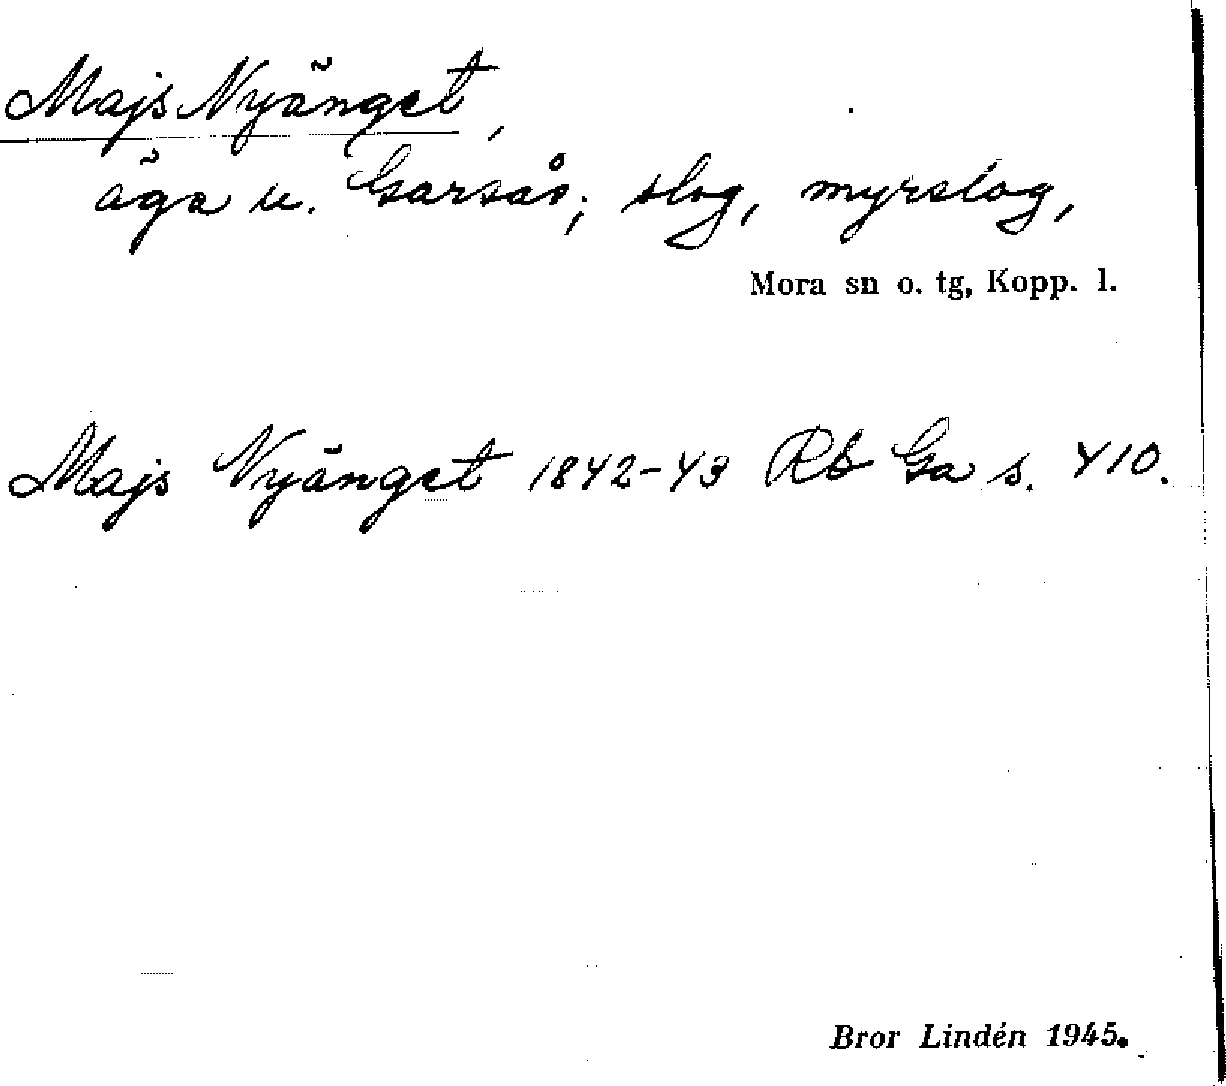 Majs Nyänget,
äga u. Garsås; slog, myrslog,
Mora sn o. tg, Kopp. l.
Majs Nyänget 1842-43 Rb Ga s. 410.
Bror Lindén 1945.